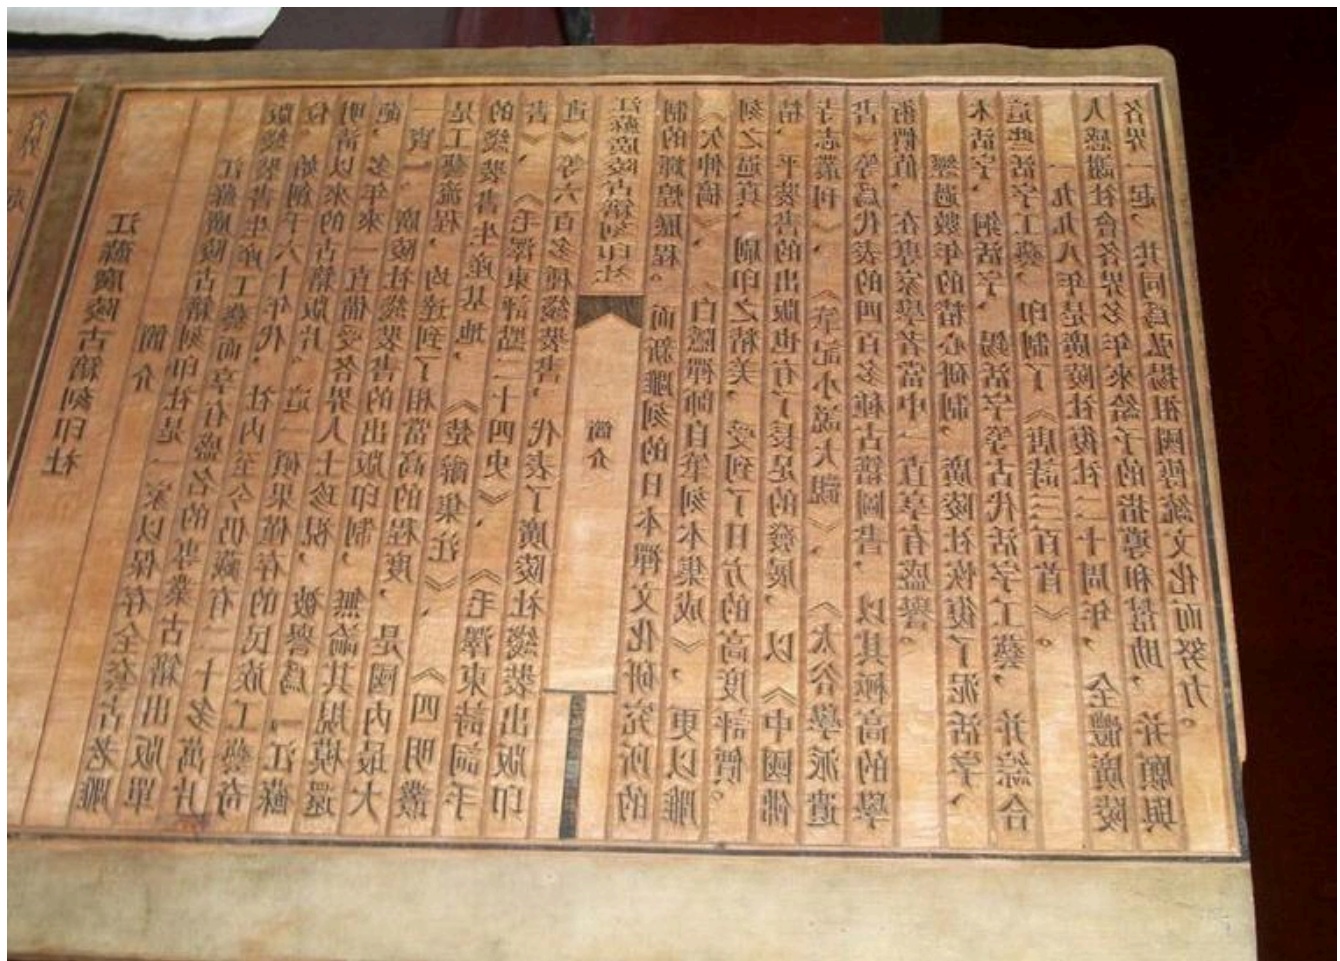 江蘇廣陵古籍刻印社
簡介
江蘇廣陵古籍刻印社是一家以保存全套古老雕
版綫裝書生産工藝而享有盛名的專業古籍出版單
位。始創于六十年代，社内至今仍藏有二十多萬片
明清以來的古籍版片。這一碩果僅存的民族工藝奇
葩，多年來一直備受各界人士珍視，被譽爲「江蘇
一寶」。廣陵社綫裝書的出版印制，無論其規模還
是工藝流程，均達到了相當高的程度，是國内最大
的綫裝書生産基地，《楚辭集注》、《四明叢
書》、《毛澤東評點二十四史》、《毛澤東詩詞手
迹》等六百多種綫裝書，代表了廣陵社綫裝出版印
江蘇廣陵古籍刻印社
簡介
制的輝煌歷程。而新雕刻的日本禪文化研究所的
《欠伸稿》、《白隱禪師自筆刻本集成》，更以雕
刻之逼真、刷印之精美，受到了日方的高度評價。
精、平裝書的出版也有了長足的發展，以《中國佛
寺志叢刊》、《筆記小説大觀》、《太谷學派遺
書》等爲代表的四百多種古籍圖書，以其極高的學
術價值，在專家學者當中一直享有盛譽。
經過數年的精心研制，廣陵社恢復了泥活字、
木活字、銅活字、錫活字等古代活字工藝，并綜合
這些活字工藝，印制了《唐詩三百首》。
一九九八年是廣陵社復社二十周年，全體廣陵
人感謝社會各界多年來給予的指導和幫助，并願與
各界一起，共同爲弘揚祖國傳統文化而努力。